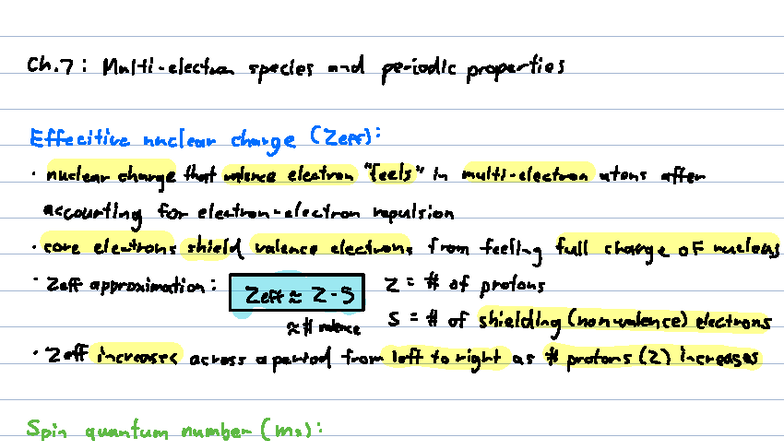 Ch.7: Multi-electron species and periodic properties
Effecitive nuclear charge (Zeff):
· nuclear charge that valence electron "feels" in multi-electron atoms after
accounting for electron-electron repulsion
· core electrons shield valence electrons from feeling full charge of nucleus
· Zeff approximation: Zeff ≈ Z - S Z = # of protons
≈ # valence S = # of shielding (nonvalence) electrons
· Zeff increases across a period from left to right as # protons (Z) increases
Spin quantum number (ms):